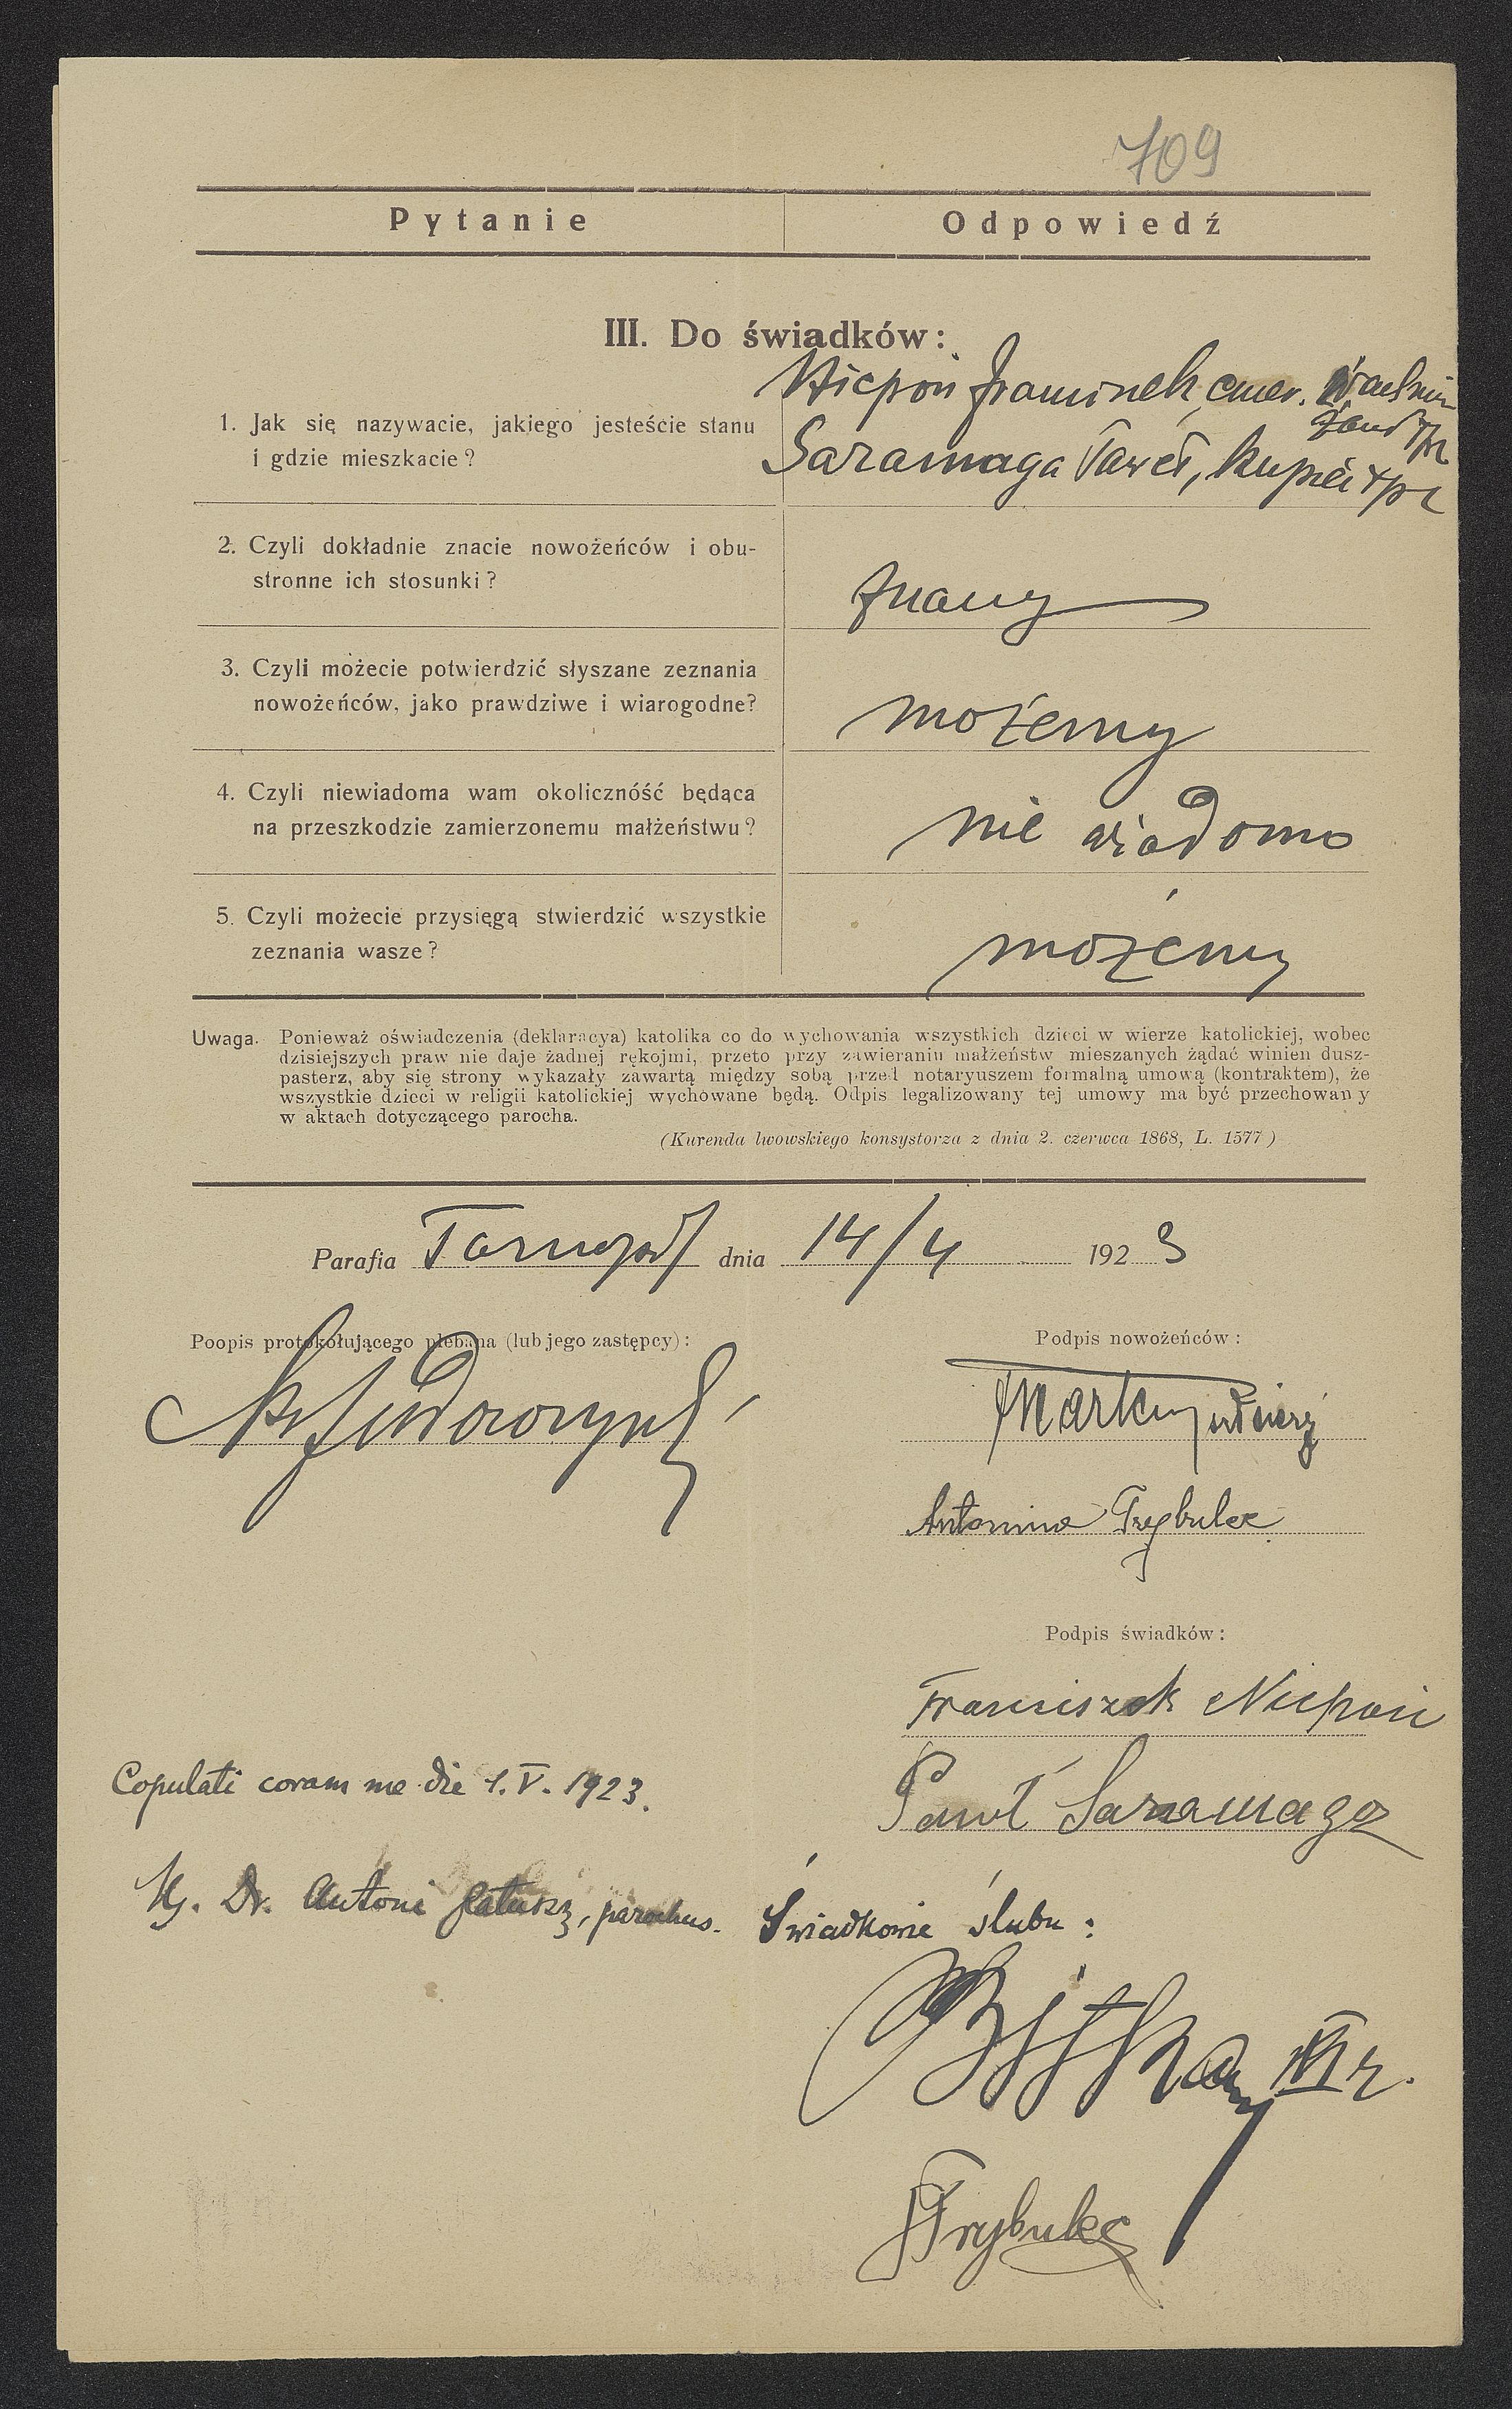 709
Pytanie Odpowiedź
III. Do świadków:
1. Jak się nazywacie, jakiego jesteście stanu
i gdzie mieszkacie?
Niepoń Franciszek, emer.
Saramaga Paweł, kupiec
2. Czyli dokładnie znacie nowożeńców i obu-
stronne ich stosunki?
znamy
3. Czyli możecie potwierdzić słyszane zeznania
nowożeńców, jako prawdziwe i wiarogodne?
możemy
4. Czyli niewiadoma wam okolicznóść będąca
na przeszkodzie zamierzonemu małżeństwu?
nie wiadomo
5. Czyli możecie przysięgą stwierdzić wszystkie
zeznania wasze?
możemy
Uwaga. Ponieważ oświadczenia (deklaracya) katolika co do wychowania wszystkich dzieci w wierze katolickiej, wobec
dzisiejszych praw nie daje żadnej rękojmi, przeto przy zawieraniu małżeństw mieszanych żądać winien dusz-
pasterz, aby się strony wykazały zawartą między sobą przed notaryuszem formalną umową (kontraktem), że
wszystkie dzieci w religii katolickiej wychowane będą. Odpis legalizowany tej umowy ma być przechowany
w aktach dotyczącego parocha.
(Kurenda lwowskiego konsystorza z dnia 2. czerwca 1868, L. 1577)
Parafia Tarnopol dnia 14/4 1923
Poopis protokołującego plebana (lub jego zastępcy):
Podpis nowożeńców:
Antonina Trybulec
Podpis świadków:
Franciszek Niepoń
Paweł Saramaga
Copulati coram me die 1. V. 1923.
X. Dr. Antoni , parochus.
Świadkowie ślubu:
Trybulec